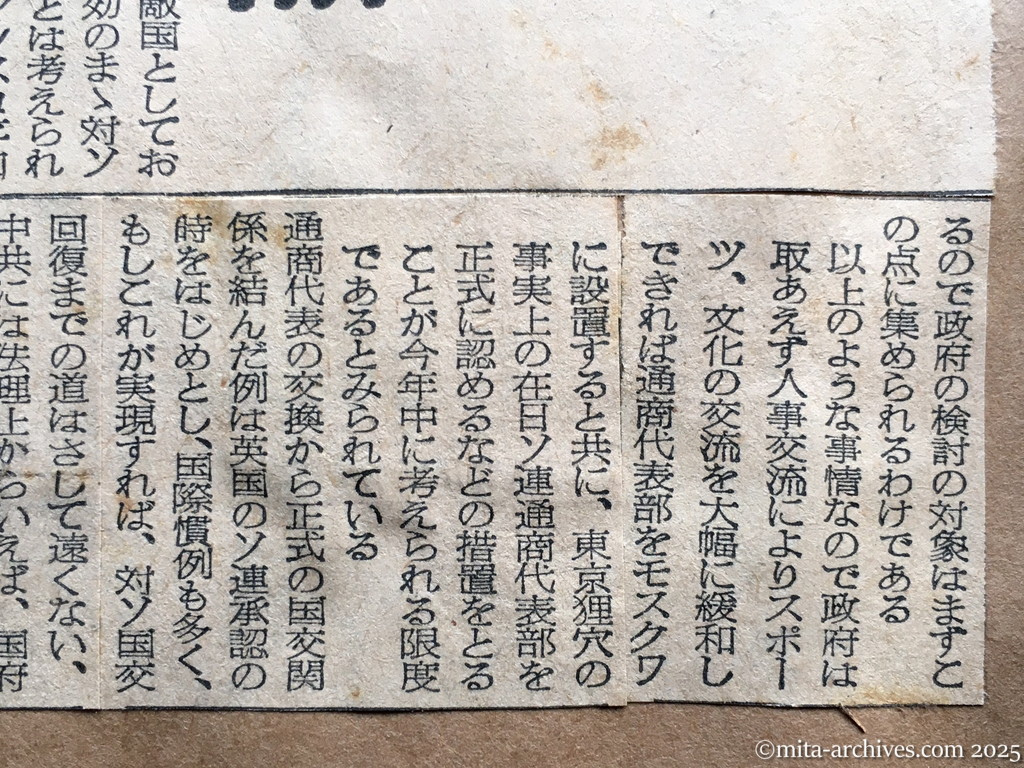 敵国としてお
効のまゝ対ソ
とは考えられ
るので政府の検討の対象はまずこ
の点に集められるわけである
以上のような事情なので政府は
取あえず人事交流によりスポー
ツ、文化の交流を大幅に緩和し
できれば通商代表部をモスクワ
に設置すると共に、東京狸穴の
事実上の在日ソ連通商代表部を
正式に認めるなどの措置をとる
ことが今年中に考えられる限度
であるとみられている
通商代表の交換から正式の国交関
係を結んだ例は英国のソ連承認の
時をはじめとし、国際慣例も多く、
もしこれが実現すれば、対ソ国交
回復までの道はさして遠くない、
中共には法理上からいえば、国府
©mita-archives.com 2025